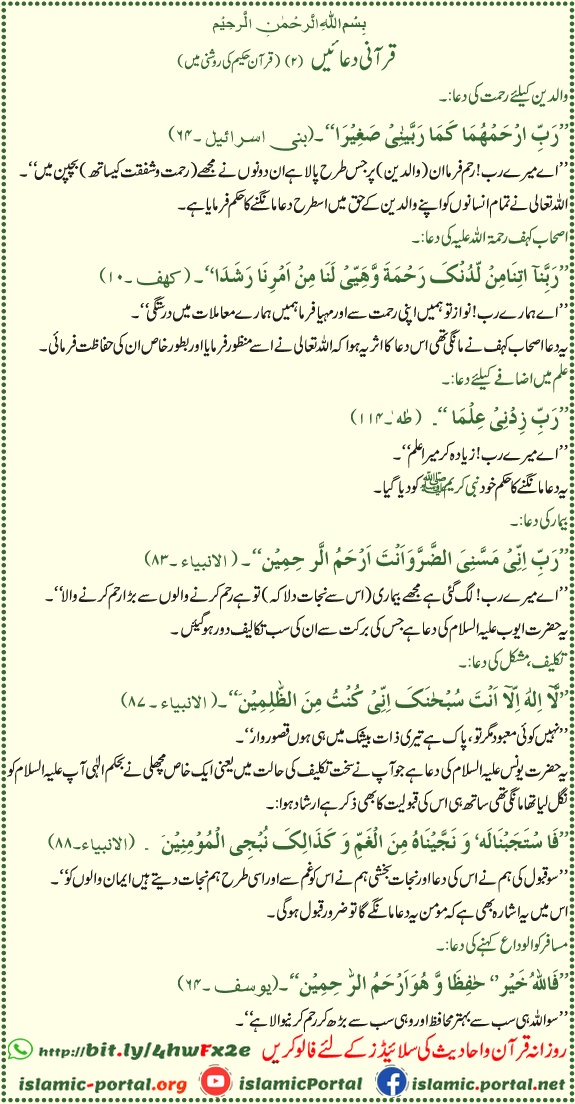 بِسْمِ اللهِ الرَّحْمٰنِ الرَّحِيْمِ
قرآنی دعائیں (۲) (قرآن حکیم کی روشنی میں)
والدین کیلئے رحمت کی دعا:۔
’’رَبِّ ارْحَمْهُمَا کَمَا رَبَّیٰنِیْ صَغِیْرًا‘‘۔(بنی اسرائیل ۔۶۴)
’’اے میرے رب! رحم فرما ان (والدین) پر جس طرح پالا ہے ان دونوں نے مجھے (رحمت و شفقت کیساتھ) بچپن میں‘‘۔
اللہ تعالی نے تمام انسانوں کو اپنے والدین کے حق میں اسطرح دعا مانگنے کا حکم فرمایا ہے۔
اصحاب کہف رحمۃ اللہ علیہ کی دعا:۔
’’رَبَّنَآ اٰتِنَامِنْ لَّدُنْکَ رَحْمَةً وَّهَیِّیْٔ لَنَا مِنْ اَمْرِنَا رَشَدًا‘‘۔(کهف ۔۱۰)
’’اے ہمارے رب! نواز تو ہمیں اپنی رحمت سے اور مہیا فرما ہمیں ہمارے معاملات میں درستگی‘‘۔
یہ دعا اصحاب کہف نے مانگی تھی اس دعا کا اثر یہ ہوا کہ اللہ تعالی نے اسے منظور فرمایا اور بطور خاص ان کی حفاظت فرمائی۔
علم میں اضافے کیلئے دعا:۔
’’رَبِّ زِدْنِیْ عِلْمًا ‘‘۔ (طٰهٰ ۔۱۱۴)
’’اے میرے رب! زیادہ کر میرا علم‘‘۔
یہ دعا مانگنے کا حکم خود نبی کریم ﷺ کو دیا گیا۔
بیمار کی دعا:۔
’’رَبِّ اِنِّیْ مَسَّنِیَ الضُّرُّوَاَنْتَ اَرْحَمُ الرّٰحِمِیْنَ‘‘۔(الانبیاء ۔۸۳)
’’اے میرے رب! لگ گئی ہے مجھے بیماری (اس سے نجات دلا کہ) تو ہے رحم کرنے والوں سے بڑا رحم کرنے والا‘‘۔
یہ حضرت ایوب علیہ السلام کی دعا ہے جس کی برکت سے ان کی سب تکالیف دور ہوگیئں۔
تکلیف، مشکل کی دعا:۔
’’لَّآ اِلٰهَ اِلَّآ اَنْتَ سُبْحٰنَکَ اِنِّیْ کُنْتُ مِنَ الظّٰلِمِیْنَ‘‘۔(الانبیاء ۔۸۷)
’’نہیں کوئی معبود مگر تو، پاک ہے تیری ذات بیشک میں ہی ہوں قصور وار‘‘۔
یہ حضرت یونس علیہ السلام کی دعا ہے جو آپ نے سخت تکلیف کی حالت میں یعنی ایک خاص مچھلی نے بحکم الٰہی آپ علیہ السلام کو
نگل لیا تھا مانگی تھی ساتھ ہی اس کی قبولیت کا بھی ذکر ہے ارشاد ہوا:۔
’’فَاسْتَجَبْنَالَهٗ وَ نَجَّیْنَاهُ مِنَ الْغَمِّ وَ کَذَالِکَ نُنْجِی الْمُوْمِنِیْنَ ۔ (الانبیاء۔۸۸)
’’سو قبول کی ہم نے اس کی دعا اور نجات بخشی ہم نے اس کو غم سے اور اسی طرح ہم نجات دیتے ہیں ایمان والوں کو‘‘۔
اس میں یہ اشارہ بھی ہے کہ مومن یہ دعا مانگے گا تو ضرور قبول ہوگی۔
مسافر کو الوداع کہنے کی دعا:۔
’’فَاللهُ خَیْرٌ حٰفِظًا وَّ هُوَاَرْحَمُ الرّٰحِمِیْنَ‘‘۔(یوسف ۔۶۴)
’’سو اللہ ہی سب سے بہتر محافظ اور وہی سب سے بڑھ کر رحم کرنیوالا ہے‘‘۔
روزانہ قرآن و احادیث کی سلائیڈز کے لئے فالو کریں http://bit.ly/4hwFx2e
islamic-portal.org islamicPortal islamic.portal.net